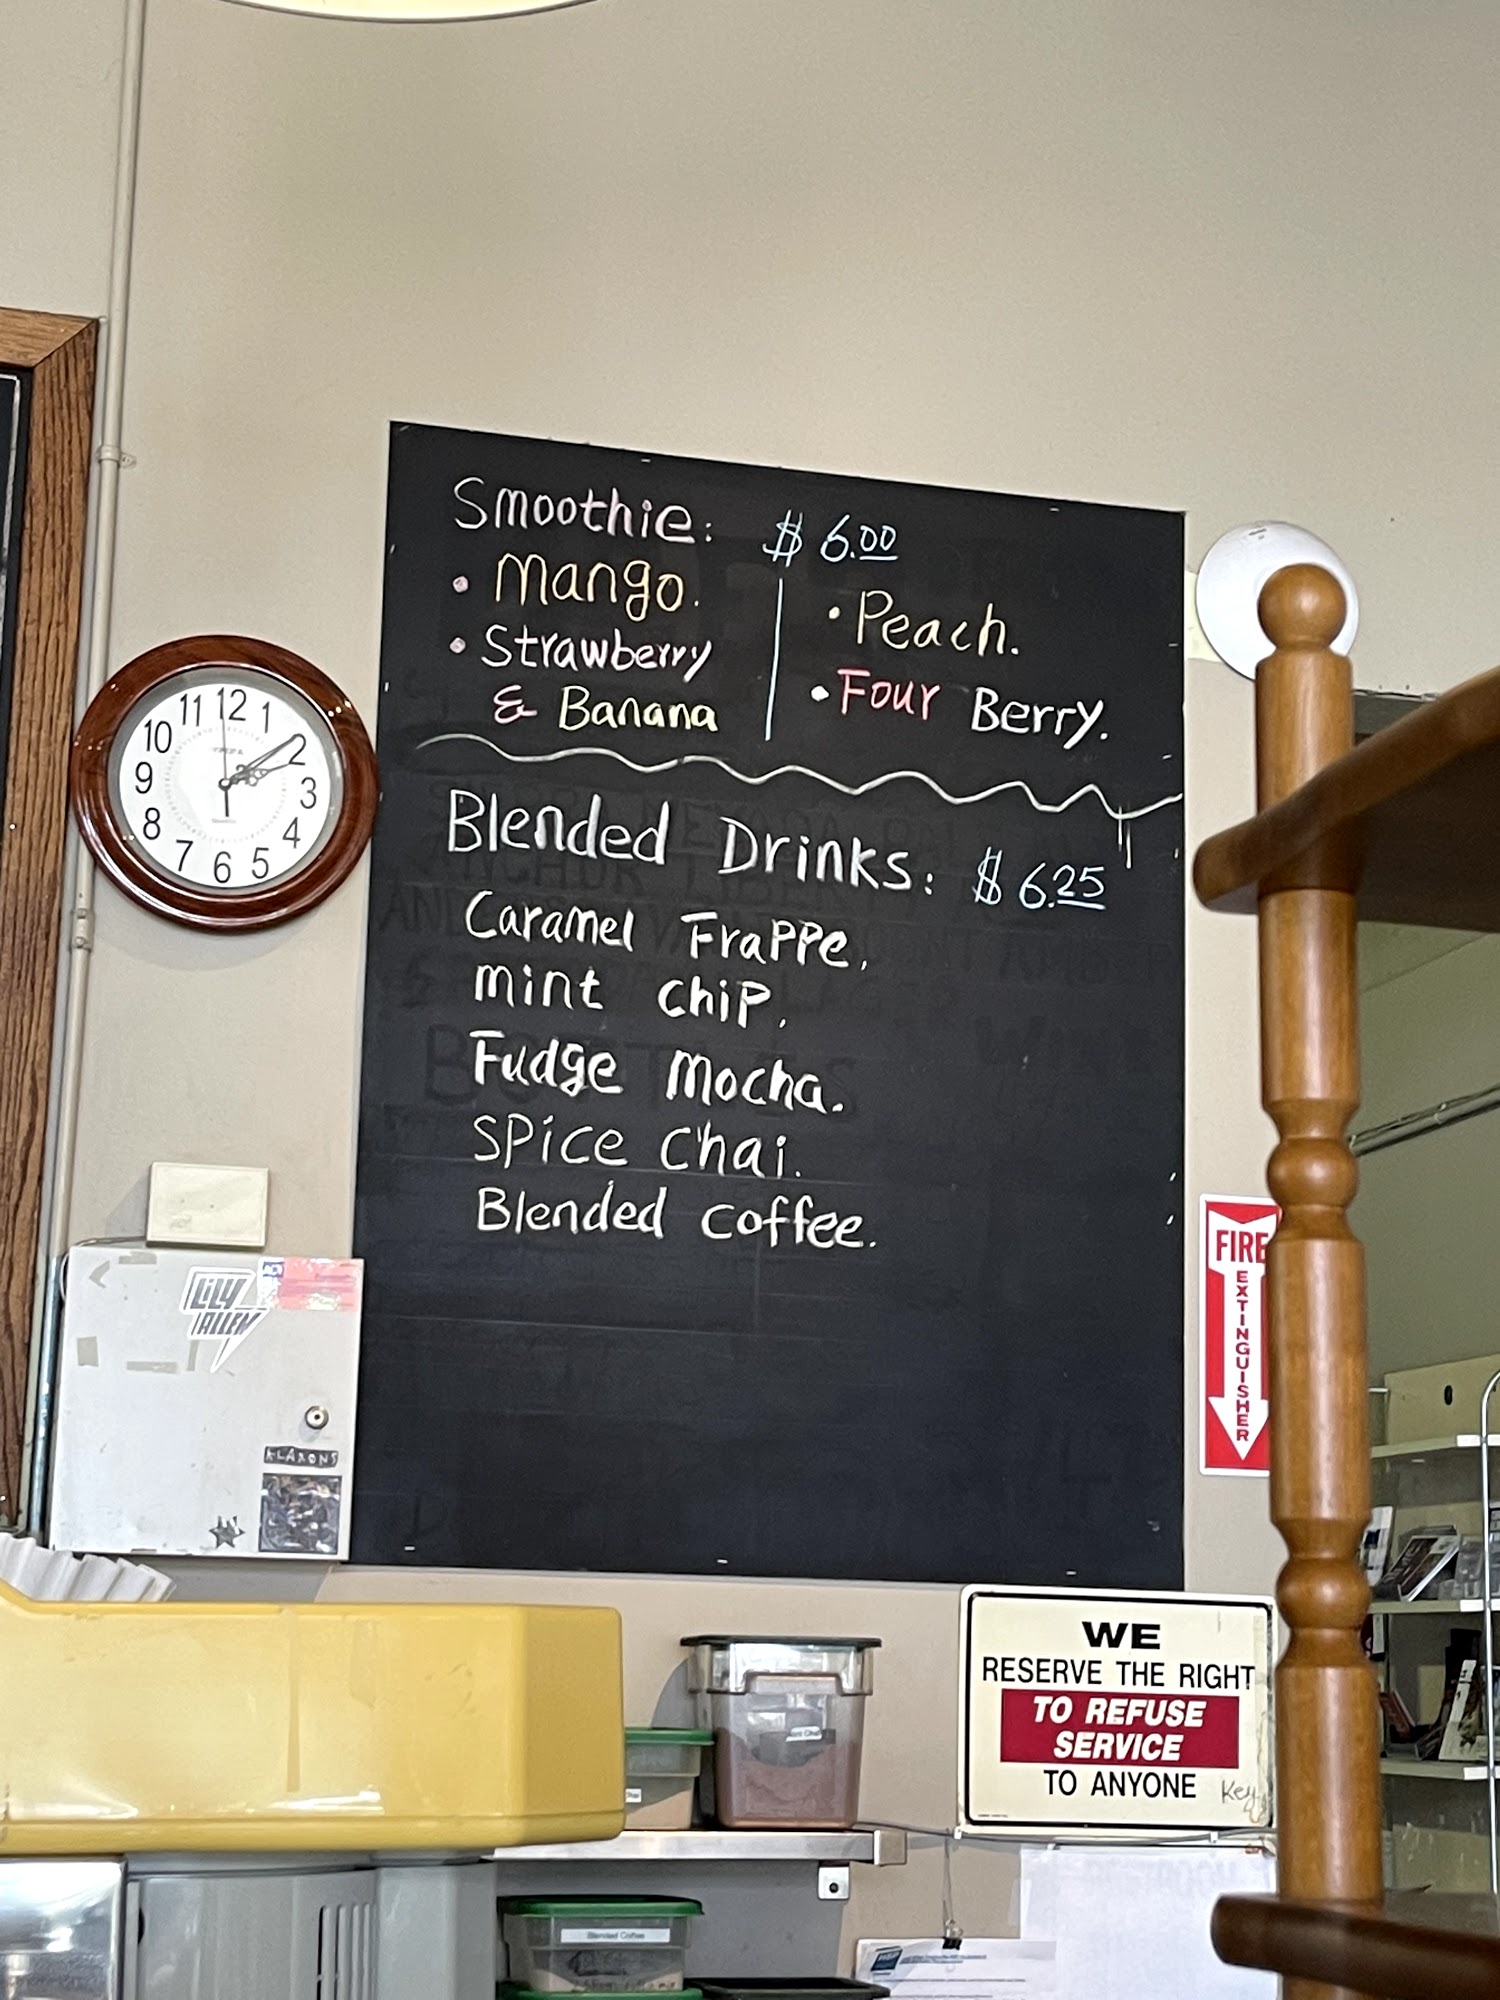 Smoothie: $ 6.00
• Mango.
• Strawberry
& Banana
• Peach.
• Four Berry.
Blended Drinks: $ 6.25
Caramel Frappe.
mint chip.
Fudge Mocha.
Spice Chai.
Blended coffee.
11 12 1
10 2
9 3
8 4
7 6 5
LILY
ALLEN
KLAXONS
FIRE
EXTINGUISHER
WE
RESERVE THE RIGHT
TO REFUSE
SERVICE
TO ANYONE
Key
Blended Coffee